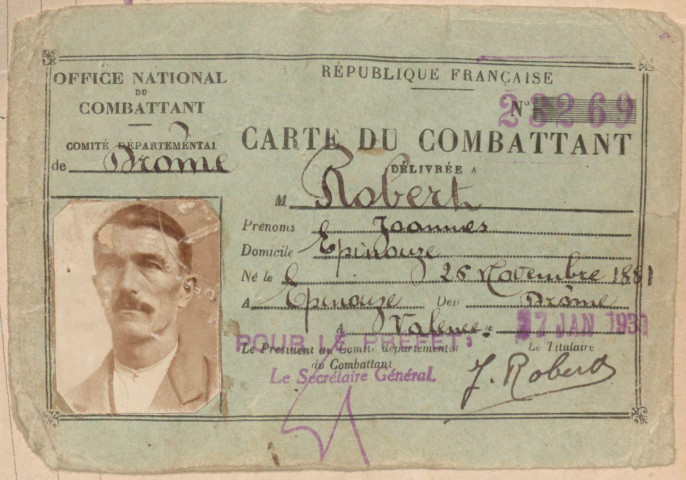 OFFICE NATIONAL
DU
COMBATTANT
COMITÉ DÉPARTEMENTAL
de Drôme
RÉPUBLIQUE FRANÇAISE
N° 23269
CARTE DU COMBATTANT
DÉLIVRÉE A
M Robert
Prénoms Joannès
Domicile Epinouze
Né le 26 Novembre 1881
A Epinouze Dep Drôme
A Valence le 27 JAN 1931
POUR LE PREFET:
Le Président du Comité départemental
du Combattant
Le Secrétaire Général.
Le Titulaire
J. Robert